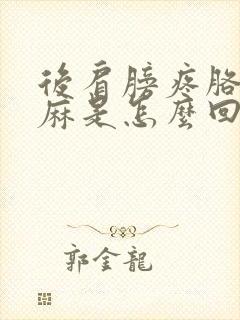 後肩膀疼胳
麻是怎麼回
郭金龍